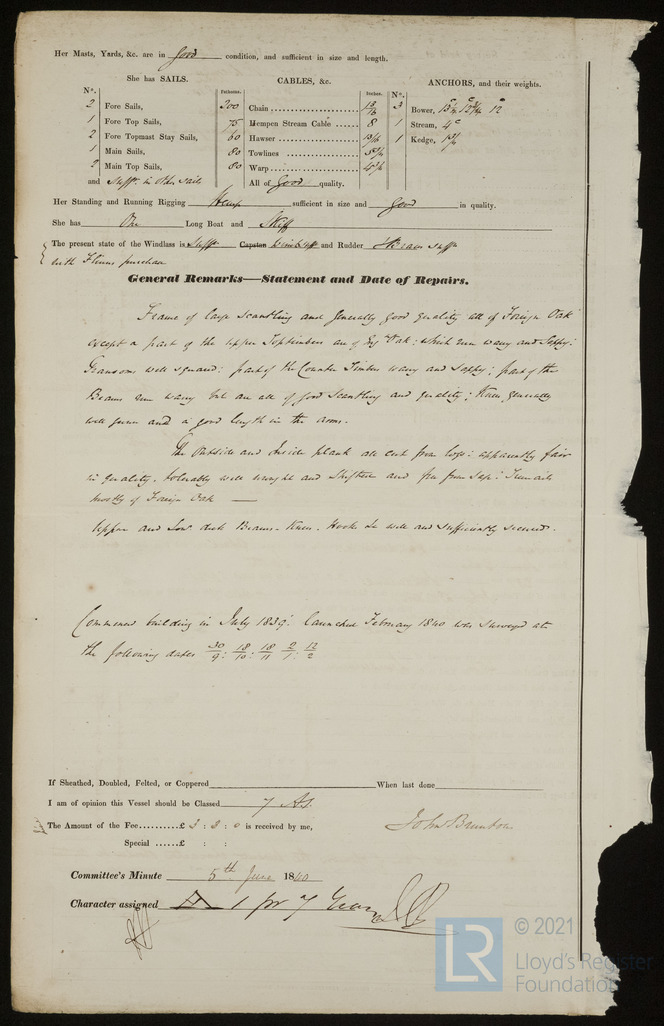 Her Masts, Yards, &c. are in good condition, and sufficient in size and length.
She has SAILS.
CABLES, &c.
ANCHORS, and their weights.
N°.
Fathoms.
Inches.
N°.
2 Fore Sails,
200 Chain
3 Bower,
1 Fore Top Sails,
75 Hempen Stream Cable 8
1 Stream, 4
2 Fore Topmast Stay Sails,
60 Hawser
1 Kedge,
1 Main Sails,
80 Towlines
2 Main Top Sails,
80 Warp
and Suff^t. in other sails
All of Good quality.
Her Standing and Running Rigging Hemp sufficient in size and Good in quality.
She has One Long Boat and Skiff
The present state of the Windlass is Suff^t. Capstan and Rudder
with purchase
General Remarks—Statement and Date of Repairs.
Frame of large scantling and generally good quality all of Foreign Oak
except a part of the upper Toptimbers are of Oak: which run waney and Sappy:
Transoms well squared: part of the Counter Timbers waney and Sappy; part of the
Beams run waney but are all of good scantling and quality; Knees generally
well grown and a good length in the arms.
The Outside and Inside plank all cut from logs: apparently fair
in quality. tolerably well wrought and Shifted and free from sap: Treenails
mostly of Foreign Oak —
Upper and Low^r deck Beams - Knees. Hooks &c well and sufficiently secured.
Commenced building in July 1839: launched February 1840 was surveyed at
the following dates 30/9: 18/10: 18/11 2/1: 12/2
If Sheathed, Doubled, Felted, or Coppered When last done
I am of opinion this Vessel should be Classed 7 A1.
The Amount of the Fee..........£ 3 : 3 : 0 is received by me,
John Brunton
Special ......£ : :
Committee's Minute 5th June 1840
Character assigned A 1 for 7 Years
LR
© 2021
Lloyd's Register
Foundation